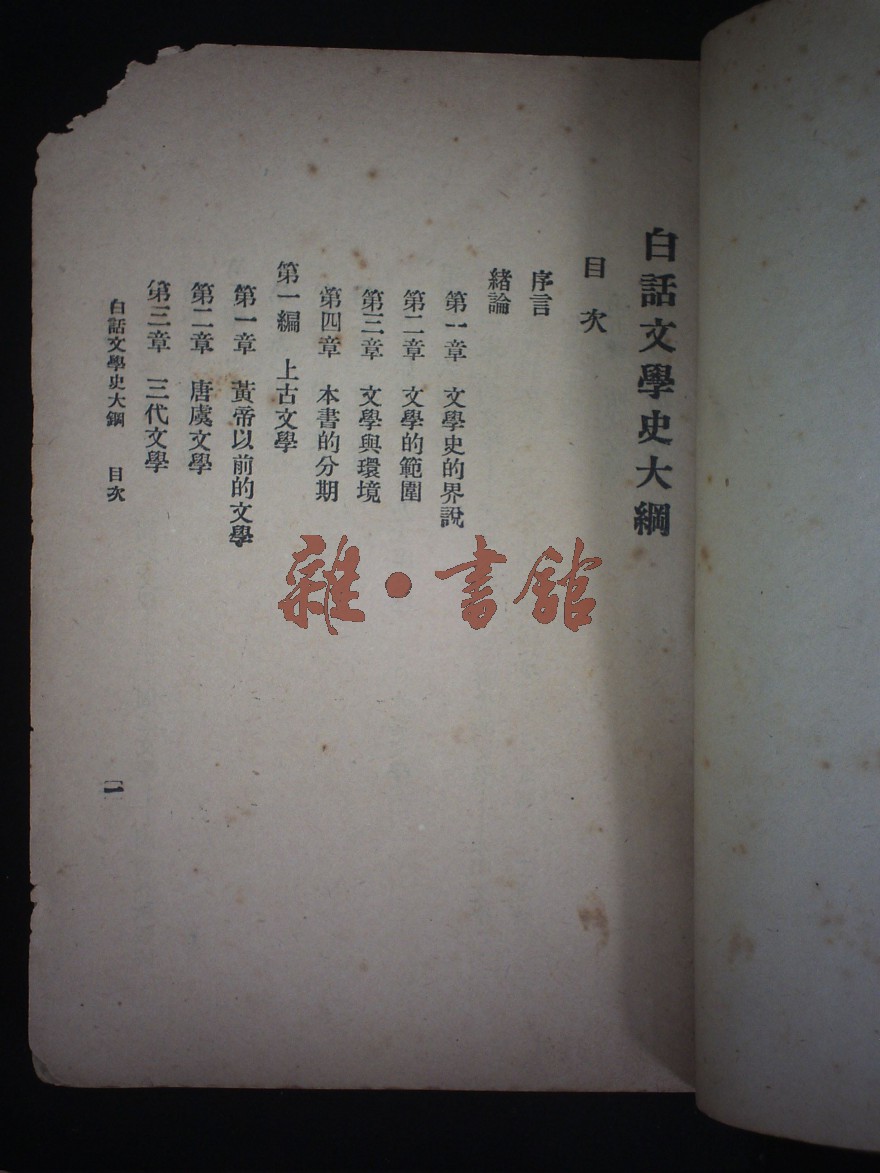 白話文學史大綱
目次
序言
緒論
第一章 文學史的界說
第二章 文學的範圍
第三章 文學與環境
第四章 本書的分期
第一編 上古文學
第一章 黃帝以前的文學
第二章 唐虞文學
第三章 三代文學
白話文學史大綱 目次
一
雜·書館